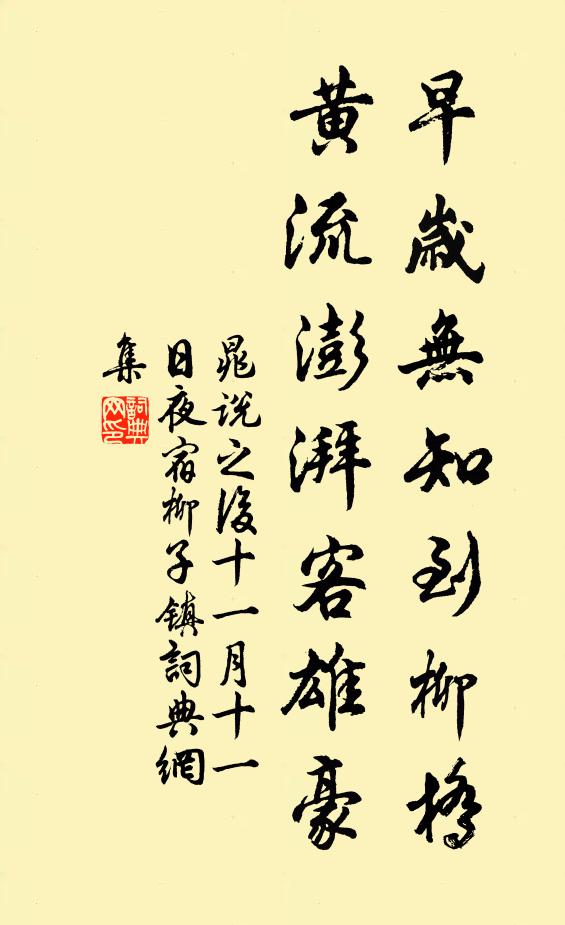 早歲無知到柳橋
黃流澎湃客雄豪
晁說之後十一月十一
日夜宿柳子鎮詞典網
集
詞典網印